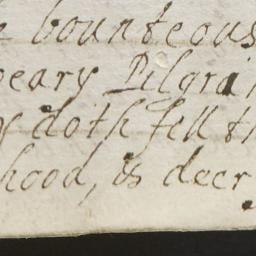 bounteous
weary Pilgri
doth fell th
hood, is deer